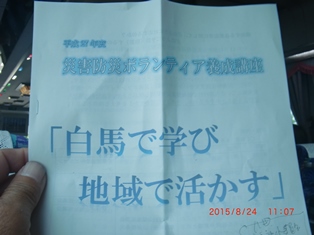 平成27年度
災害防災ボランティア養成講座
「白馬で学び
地域で活かす」
2015/8/24 11:07